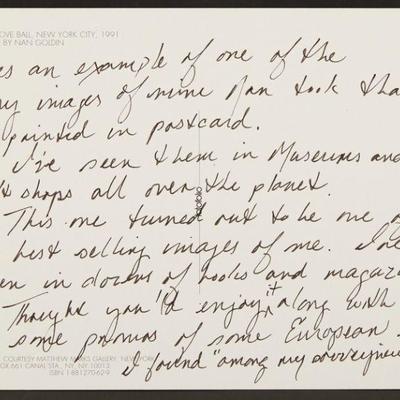 OVE BALL, NEW YORK CITY, 1991
BY NAN GOLDIN
es an example of one of the
ny images of mine Nan took tha
printed in postcard.
I've seen them in Museums and
t shops all over the planet.
This one turned out to be one o
best selling images of me. I've
en in dozens of books and magaz
Thought you'd enjoy it along with
some promos of some European
I found "among my souvenirs
COURTESY MATTHEW MARKS GALLERY, NEW YORK
OX 661 CANAL STA., NY, NY 10013
ISBN 1-881270-62-9